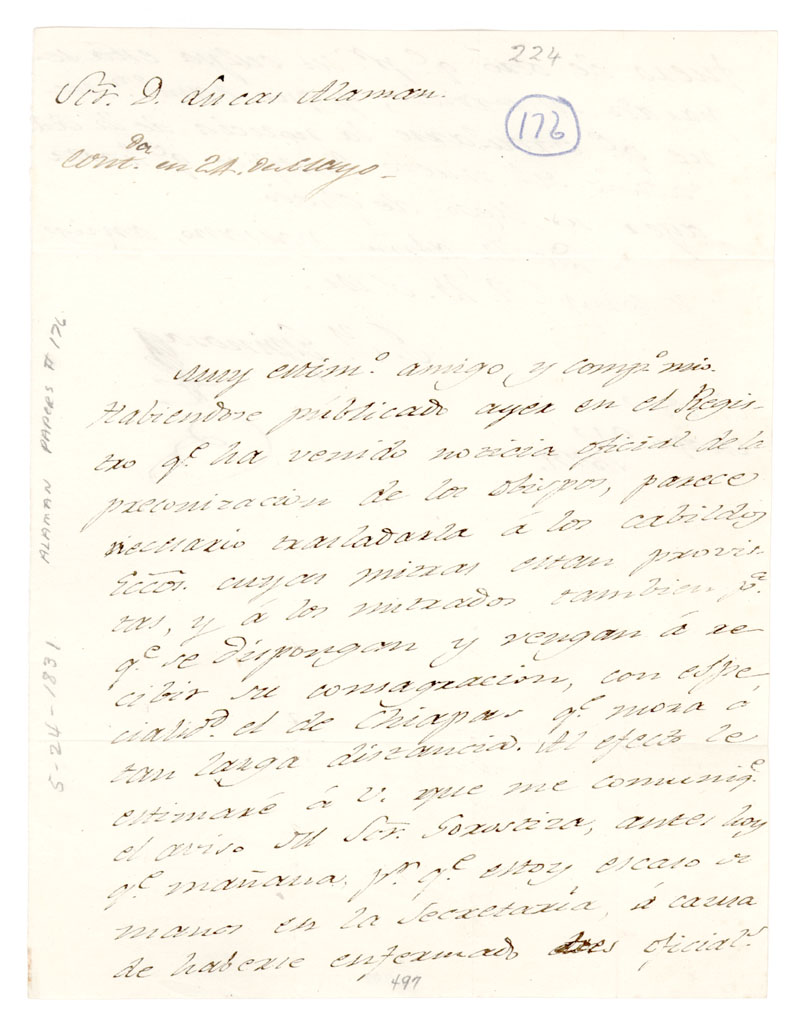 224
Sōr. D. Lucas Alaman.
176
Cont.da en 24. de Mayo_
Muy estim.o amigo y comp.o mio.
Habiendose publicado ayer en el Regis-
tro q.e ha venido noticia oficial de la
preconizacion de los obispos, parece
necesario trasladarla á los cabildos
Eccōs. cuyas mitras estan provis-
tas, y á los mitrados tambien p.a
q.e se dispongan y vengan á re
cibir su consagracion, con espe-
cialid.d el de Chiapas q.e mora á
tan larga distancia. Al efecto le
estimaré á V. que me comuniq.e
el aviso del Sōr. Gorostiza, antes hoy
q.e mañana, p.r q.e estoy escaso de
manos en la Secretaría, á causa
de haberse enfermado tres oficial.s
497
ALAMAN PAPERS # 176
5-24-1831